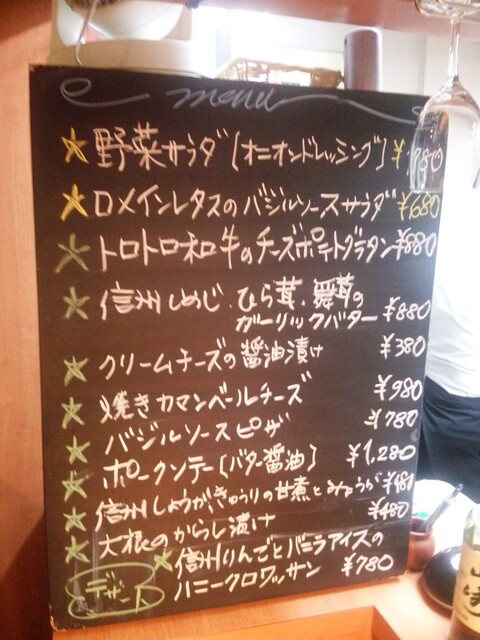 menu
★野菜サラダ[オニオンドレッシング] ¥780
★ロメインレタスのバジルソースサラダ ¥680
★トロトロ和牛のチーズポテトグラタン ¥880
★信州しめじ、ひら茸、舞茸の
ガーリックバター ¥880
★クリームチーズの醤油漬け ¥380
★焼きカマンベールチーズ ¥980
★バジルソースピザ ¥780
★ポークソテー[バター醤油] ¥1,280
★信州しょうがきゅうりの甘煮とみょうが ¥480
★大根のからし漬け ¥480
★信州りんごとバニラアイスの
デザート ハニークロワッサン ¥780